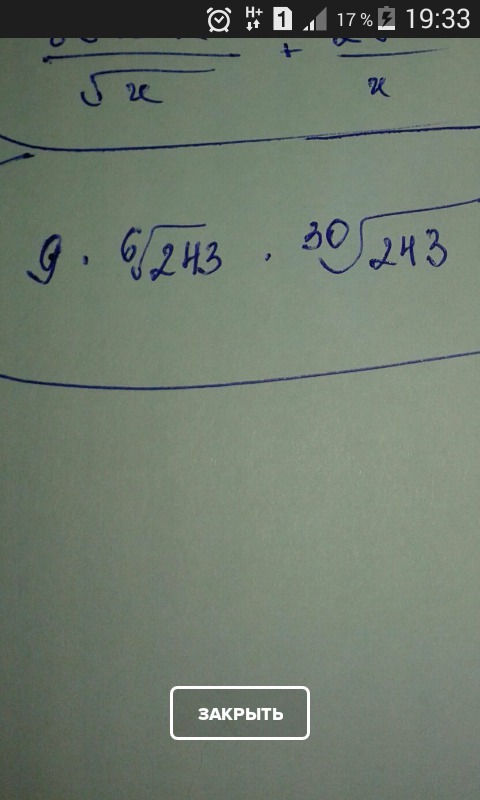 H+ 1 17% 19:33
√x + x
9 · ⁶√243 · ³⁰√243
ЗАКРЫТЬ